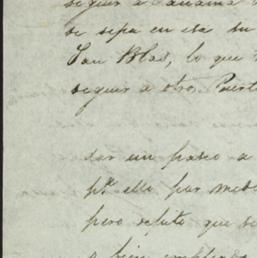 seguir a Panamá
se sepa en esa su
San Blas, lo que
seguir a otro Puert
dar un paseo a
pa. ello por med
pero repito que s
a bien emplead